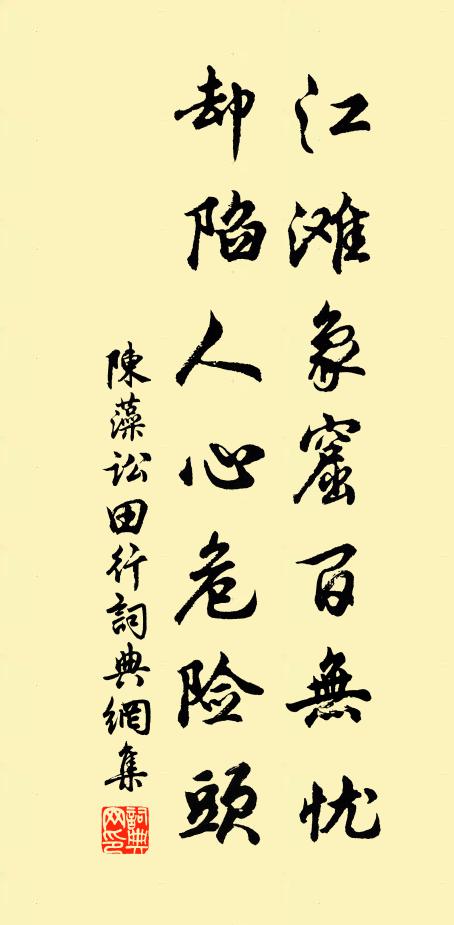 江滩象窟百無忧
却陷人心危险頭
陳藻訟田行詞典網集
詞典網印